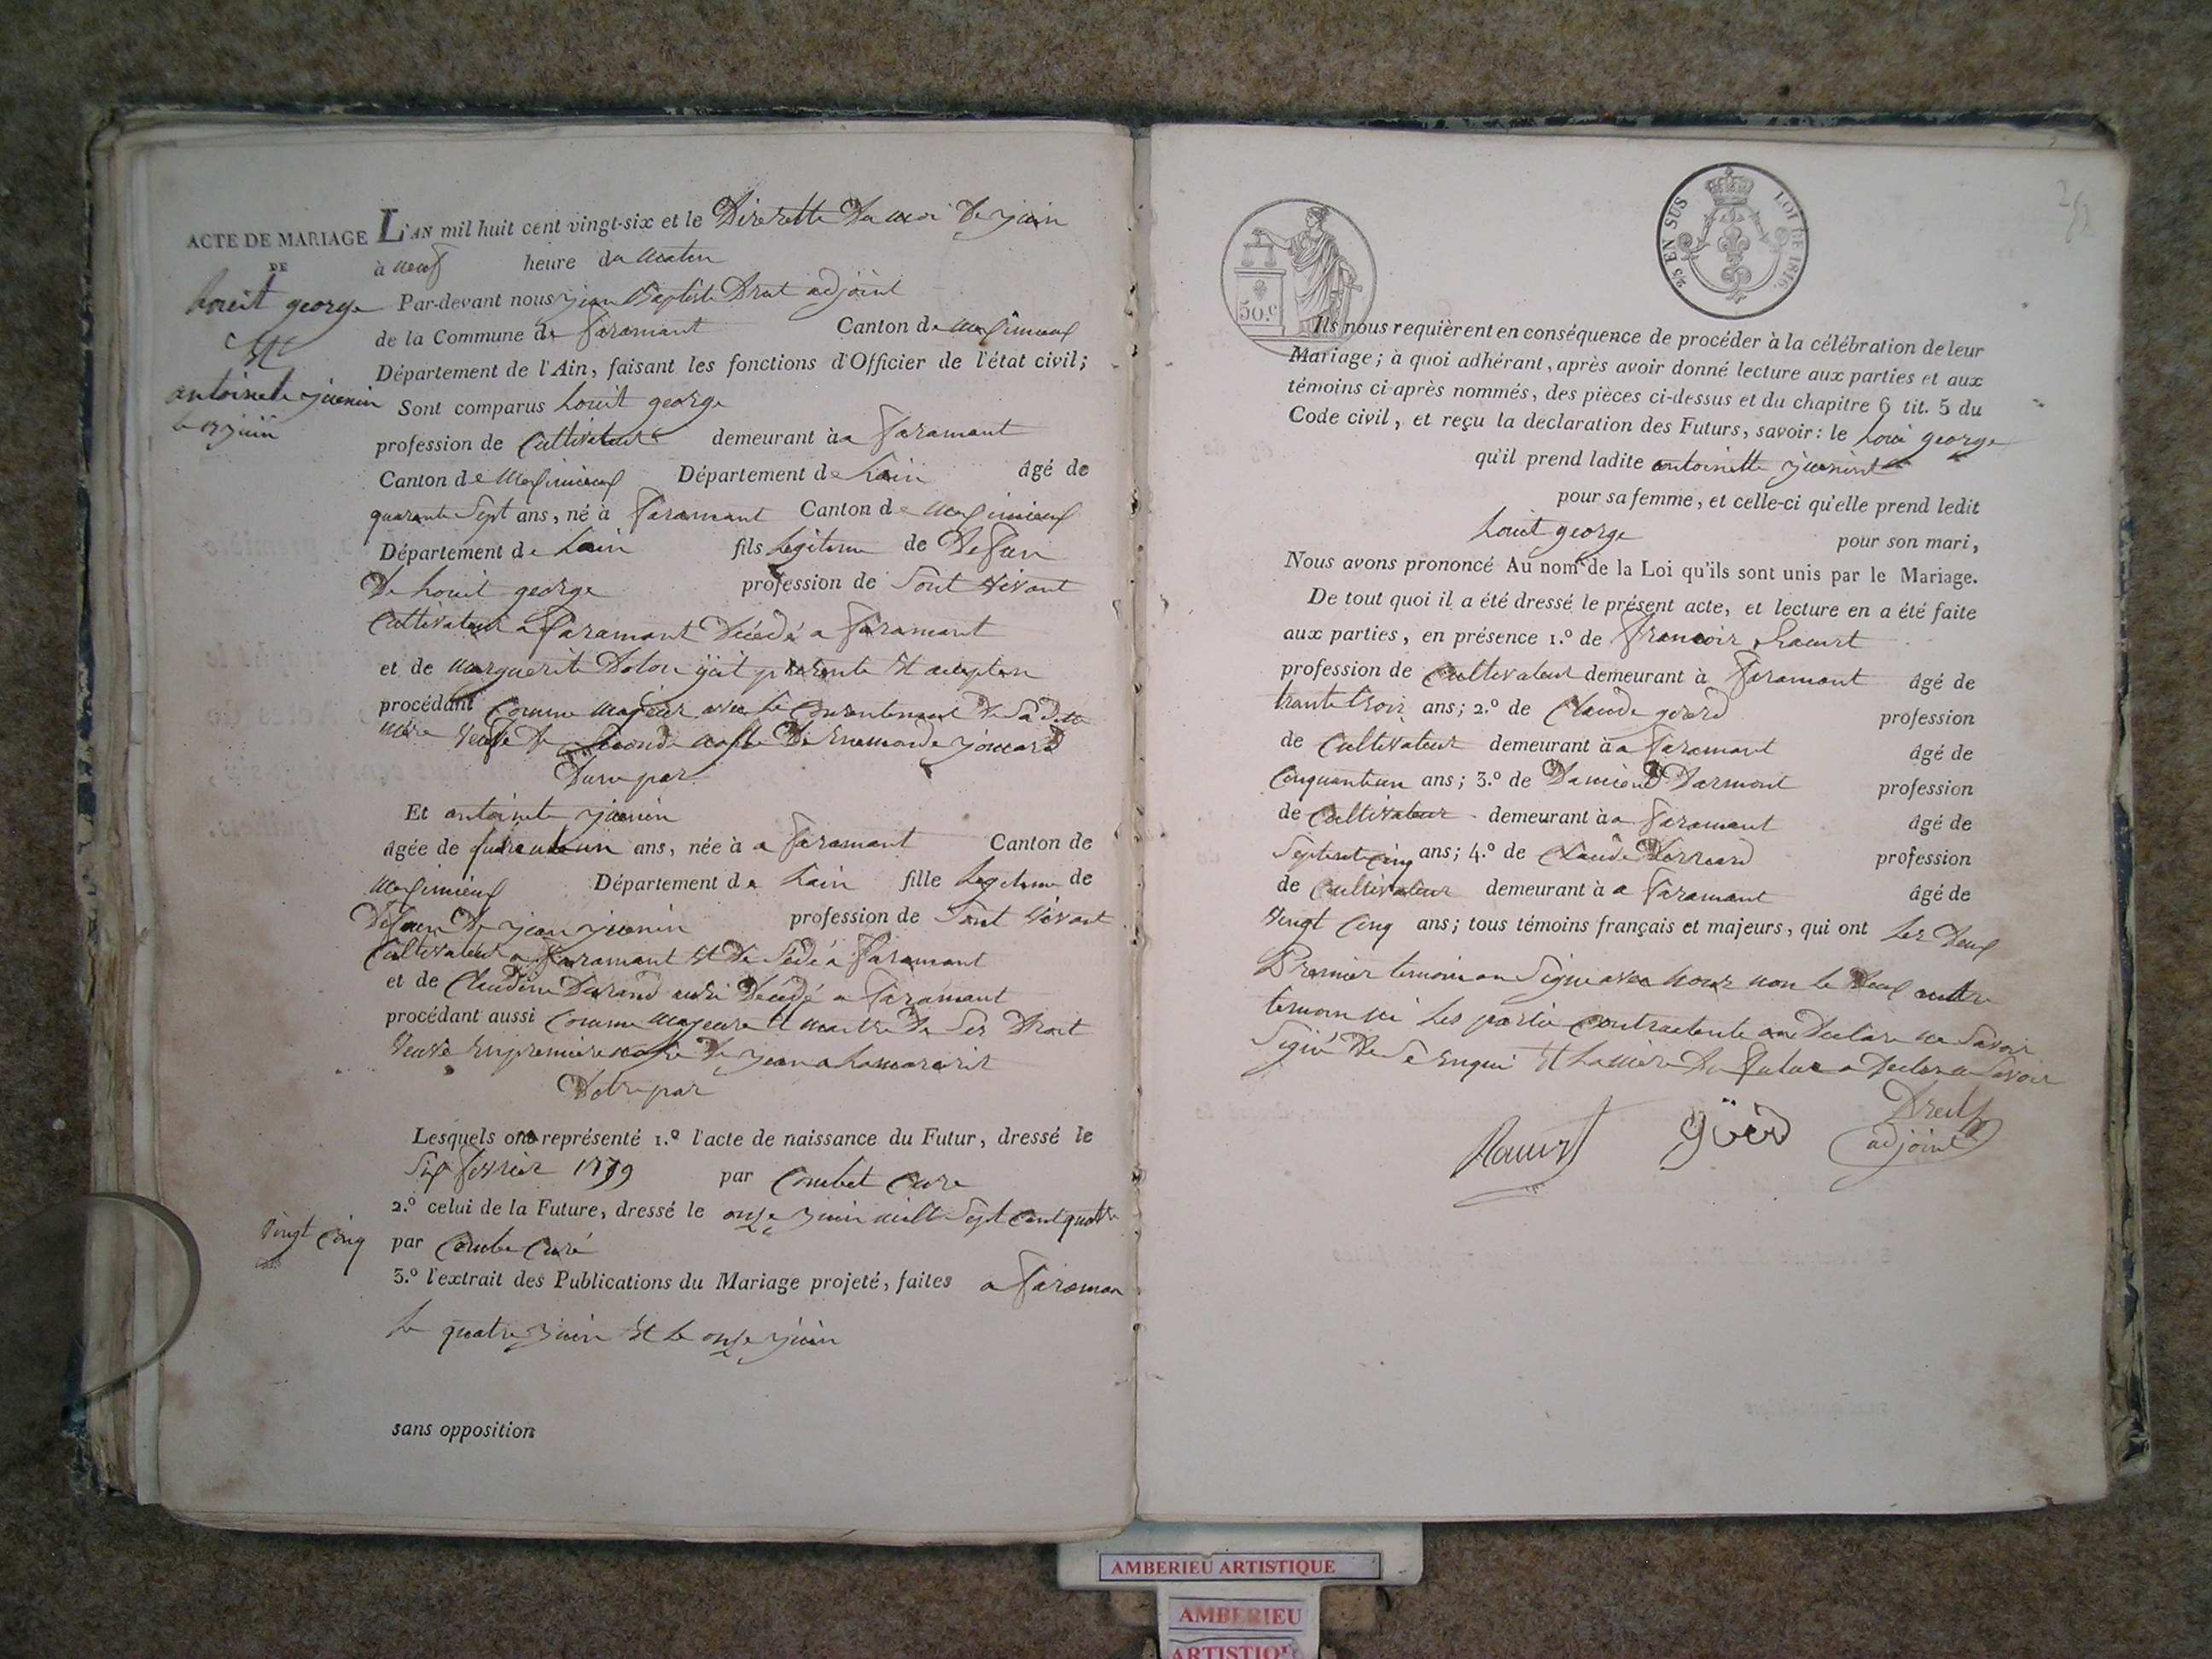 ACTE DE MARIAGE
DE
houit george
Et
antoinete juenin
le 17 juin
L'AN mil huit cent vingt-six et le Disesette Du moi De juin
à neuf heure du matin
Par-devant nous jean Baptiste Drut adjoint
de la Commune de faramant Canton de meximieux
Département de l'Ain, faisant les fonctions d'Officier de l'état civil;
Sont comparus houit george
profession de Cultivateur demeurant à a faramant
Canton de meximieux Département de Lain âgé de
quarante Sept ans, né à faramant Canton de meximieux
Département de Lain fils Legitime de Defun
De houit george profession de Sont vivant
Cultivateur a faramant Décédé a faramant
et de marguerite Dolon
procédant Comme majeur avec le Consentement De Sa ditte
mère veuve De Seconde
Et antoinete juenin
âgée de quarente un ans, née à a faramant Canton de
meximieux Département de Lain fille Legitime de
Defun De jean juenin profession de Sont vivant
Cultivateur a faramant Et De Sédé a faramant
et de Claudine Durand ausi Décédé a faramant
procédant aussi Comme majeure Et maitre De Ses Droit
veuve en premiere De jean
Lesquels ont représenté 1.º l'acte de naissance du Futur, dressé le
Six fevrier 1779 par Combet Cure
2.º celui de la Future, dressé le onze juin mille Sept Cent quatre
vingt Cinq
par Combe Curé
3.º l'extrait des Publications du Mariage projeté, faites a faraman
le quatre juin Et le onze juin
sans opposition
50.c
25 EN SUS LOI DE 1816.
Ils nous requièrent en conséquence de procéder à la célébration de leur
Mariage; à quoi adhérant, après avoir donné lecture aux parties et aux
témoins ci-après nommés, des pièces ci-dessus et du chapitre 6 tit. 5 du
Code civil, et reçu la declaration des Futurs, savoir: le houi george
qu'il prend ladite antoinette juenint
pour sa femme, et celle-ci qu'elle prend ledit
houit george pour son mari,
Nous avons prononcé Au nom de la Loi qu'ils sont unis par le Mariage.
De tout quoi il a été dressé le présent acte, et lecture en a été faite
aux parties, en présence 1.º de francois
profession de Cultivateur demeurant à faramant âgé de
trante trois ans; 2.º de Claude profession
de Cultivateur demeurant à a faramant âgé de
Cinquant un ans; 3.º de Damiend Darmont profession
de Cultivateur demeurant à a faramant âgé de
Septent Cinq ans; 4.º de Claude profession
de Cultivateur demeurant à a faramant âgé de
vingt Cinq ans; tous témoins français et majeurs, qui ont Les Deux
Premier temoin on Signe avec nous non le Deux autre
temoin ni les partie Contractente on Declare ne Savoir
Signé De Se Enqui Et La mère Du futur a Declare Savoir
Drut
adjoint
AMBERIEU ARTISTIQUE
AMBERIEU
ARTISTIQUE